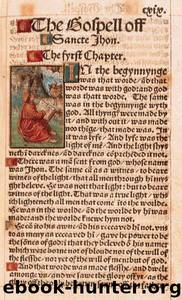 cxix.
The Gospell off
Sancte Jhon.
The fyrst Chapter.
In the begynnynge
was that worde / and that
worde was with god: and god
was thatt worde. The same
was in the begynnynge wyth
god. All thyngf were made by
it / and with out it / was made
nothige / that made was. In
it was lyfe / And lyfe was the
light of mē / And the light shy
There was a mā sent from god / whose name
was Jhon. The same cā as a witnes / to beare
witnes of the light / that all men through hī my
ght beleve. He was not that light: but to beare
witnes of the light. That was a true light / wh
ich lighteneth all men that come ito the worlde.
He was in the worlde / ād the worlde by hī was
made: and the worlde knewe hym not.
He cā ito his awne / ād his receaved hī not. vn
as many as receaved hī / gave he power to be
the sōnes of god: ī that they beleved ō his name:
which were borne not of bloude nor of the will of
the flesshe / nor yet of the will of men: but of god.
And that worde was made flesshe / and dwelt
amonge vs / and we sawe the glory off yt / as the
ebook-hunter.org